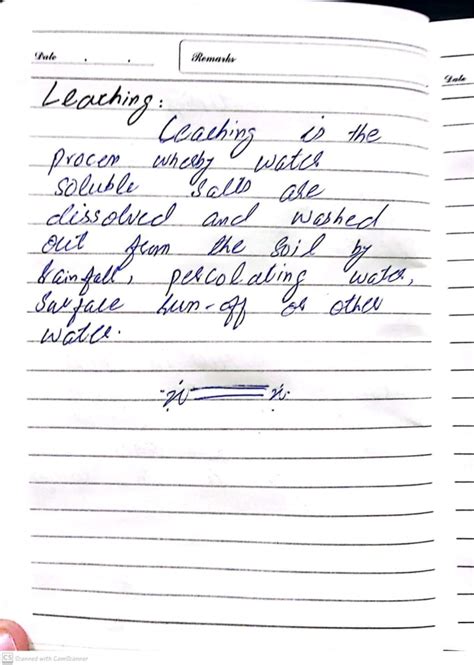 Date . .
Remarks
Date
Leaching:
Leaching is the
process whereby water
soluble salts are
dissolved and washed
out from the soil by
Rainfall, percolating water,
Surface Run-off or other
water.
x x
CS Scanned with CamScanner